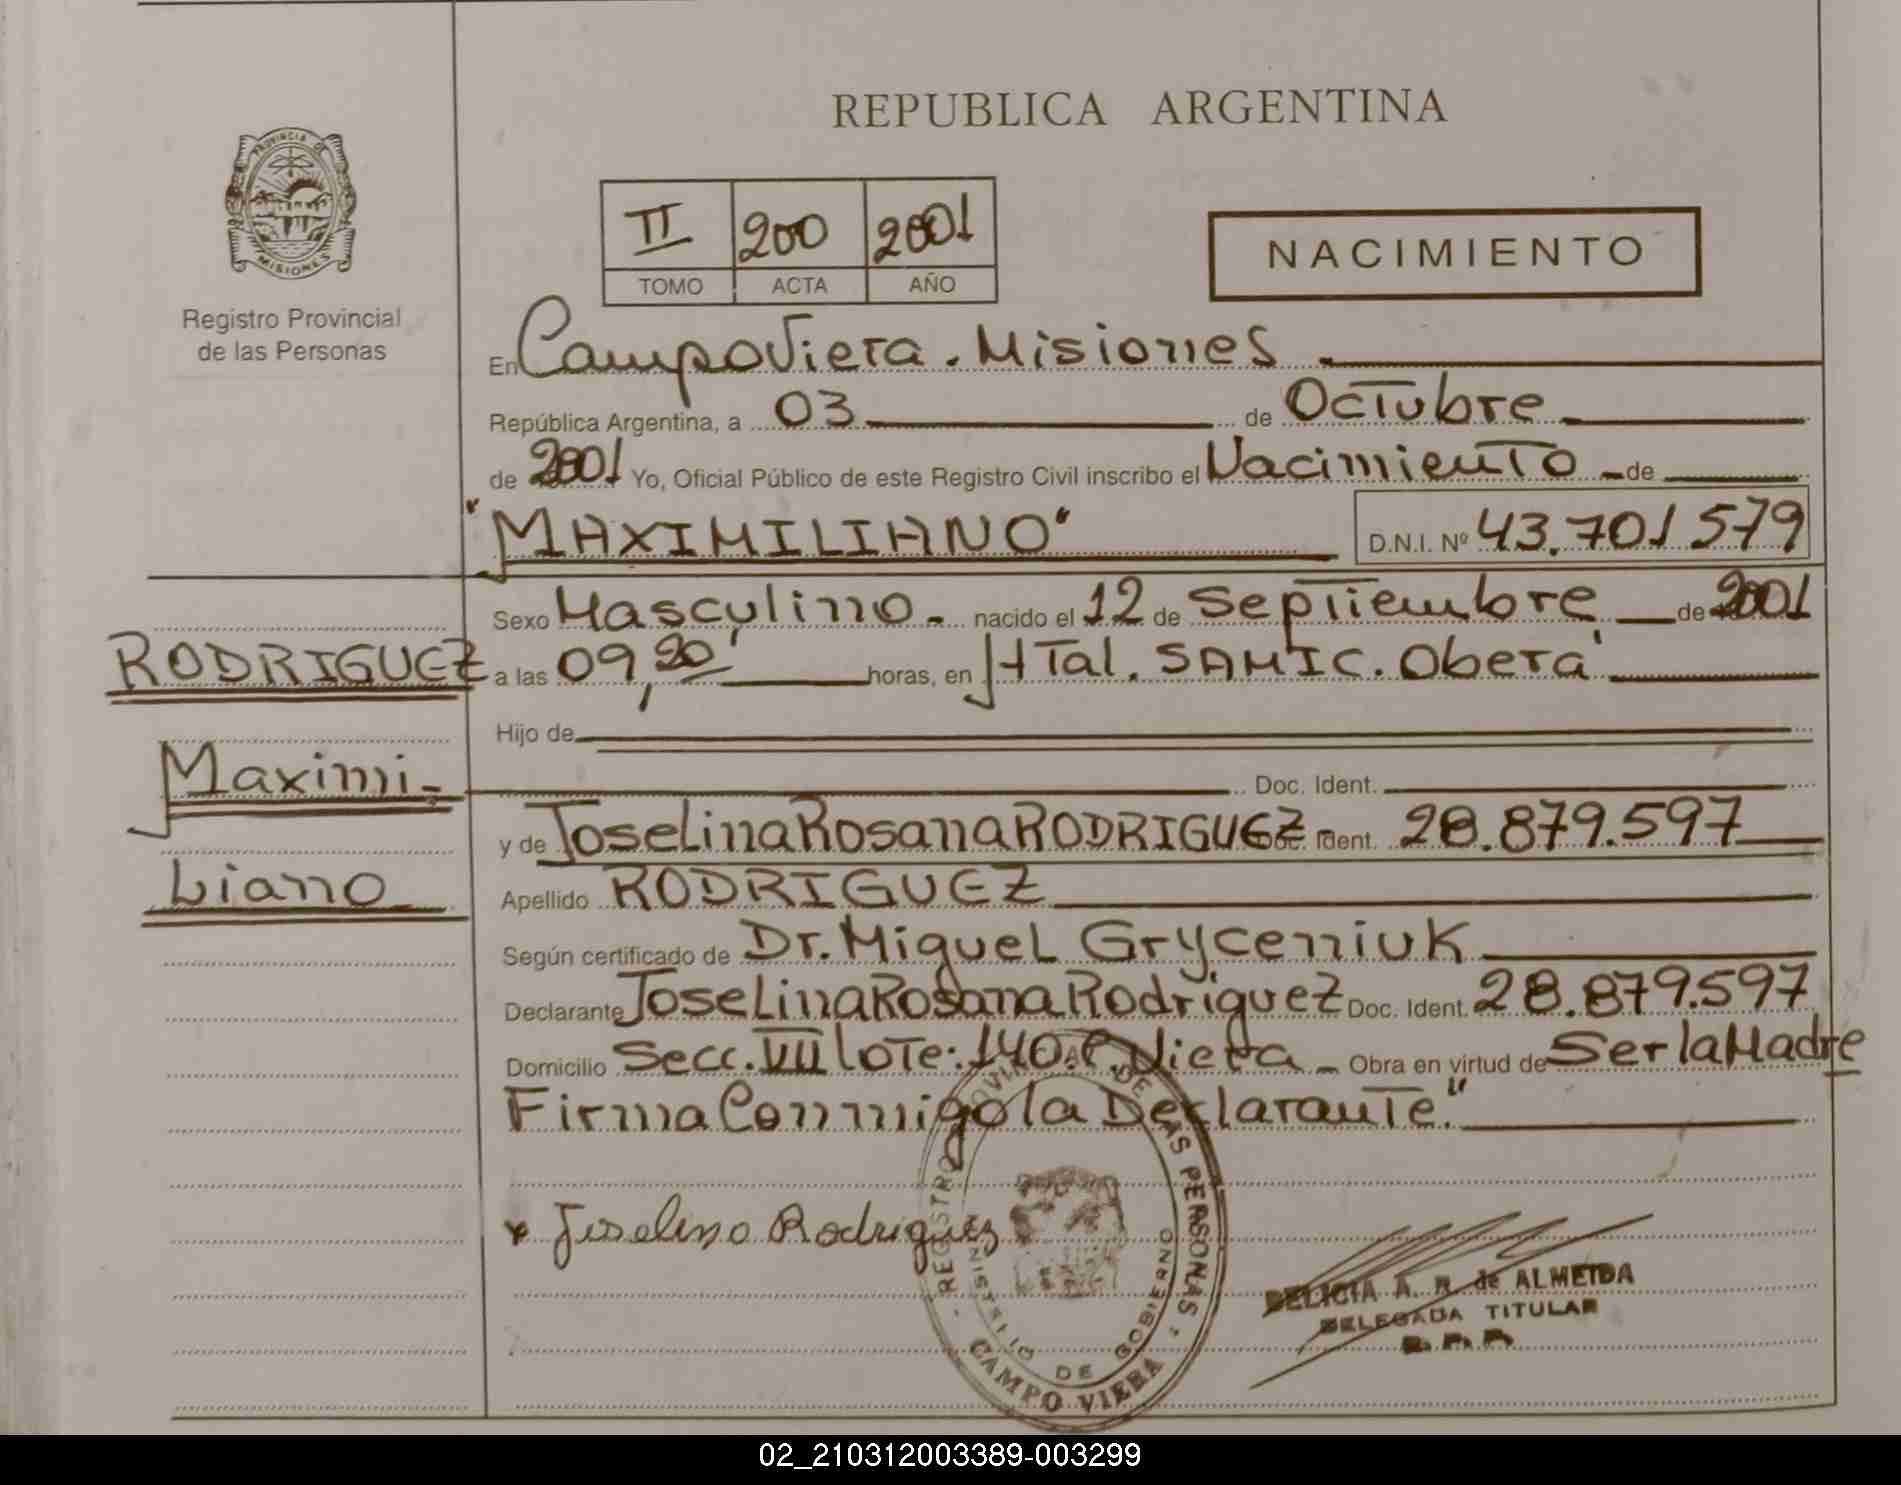 PROVINCIA DE
MISIONES
Registro Provincial
de las Personas
REPUBLICA ARGENTINA
II 200 2001
TOMO ACTA AÑO
NACIMIENTO
En Campo Viera. Misiones
República Argentina, a 03 de Octubre
de 2001 Yo, Oficial Público de este Registro Civil inscribo el Nacimiento de
"MAXIMILIANO" D.N.I. Nº 43.701579
Sexo Masculino nacido el 12 de Septiembre de 2001
RODRIGUEZ
a las 09,20' horas, en HTal. SAMIC. Oberá
Hijo de
Maximi-
Doc. Ident.
y de Joselina Rosana RODRIGUEZ Doc. Ident. 28.879.597
Liano
Apellido RODRIGUEZ
Según certificado de Dr. Miguel Gryceniuk
Declarante Joselina Rosana Rodriguez Doc. Ident. 28.879.597
Domicilio Secc. VII lote: 140. C. Viera Obra en virtud de Ser la Madre
Firma Conmigo la Declarante."
x Joselina Rodriguez
REGISTRO PROVINCIAL DE LAS PERSONAS
MINISTERIO DE GOBIERNO
CAMPO VIERA
DELICIA A. R. de ALMEIDA
DELEGADA TITULAR
R. P. P.
02_210312003389-003299